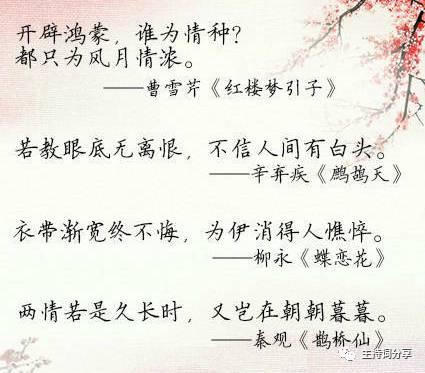 开辟鸿蒙，谁为情种？
都只为风月情浓。
——曹雪芹《红楼梦引子》
若教眼底无离恨，不信人间有白头。
——辛弃疾《鹧鸪天》
衣带渐宽终不悔，为伊消得人憔悴。
——柳永《蝶恋花》
两情若是久长时，又岂在朝朝暮暮。
——秦观《鹊桥仙》
主持词分享